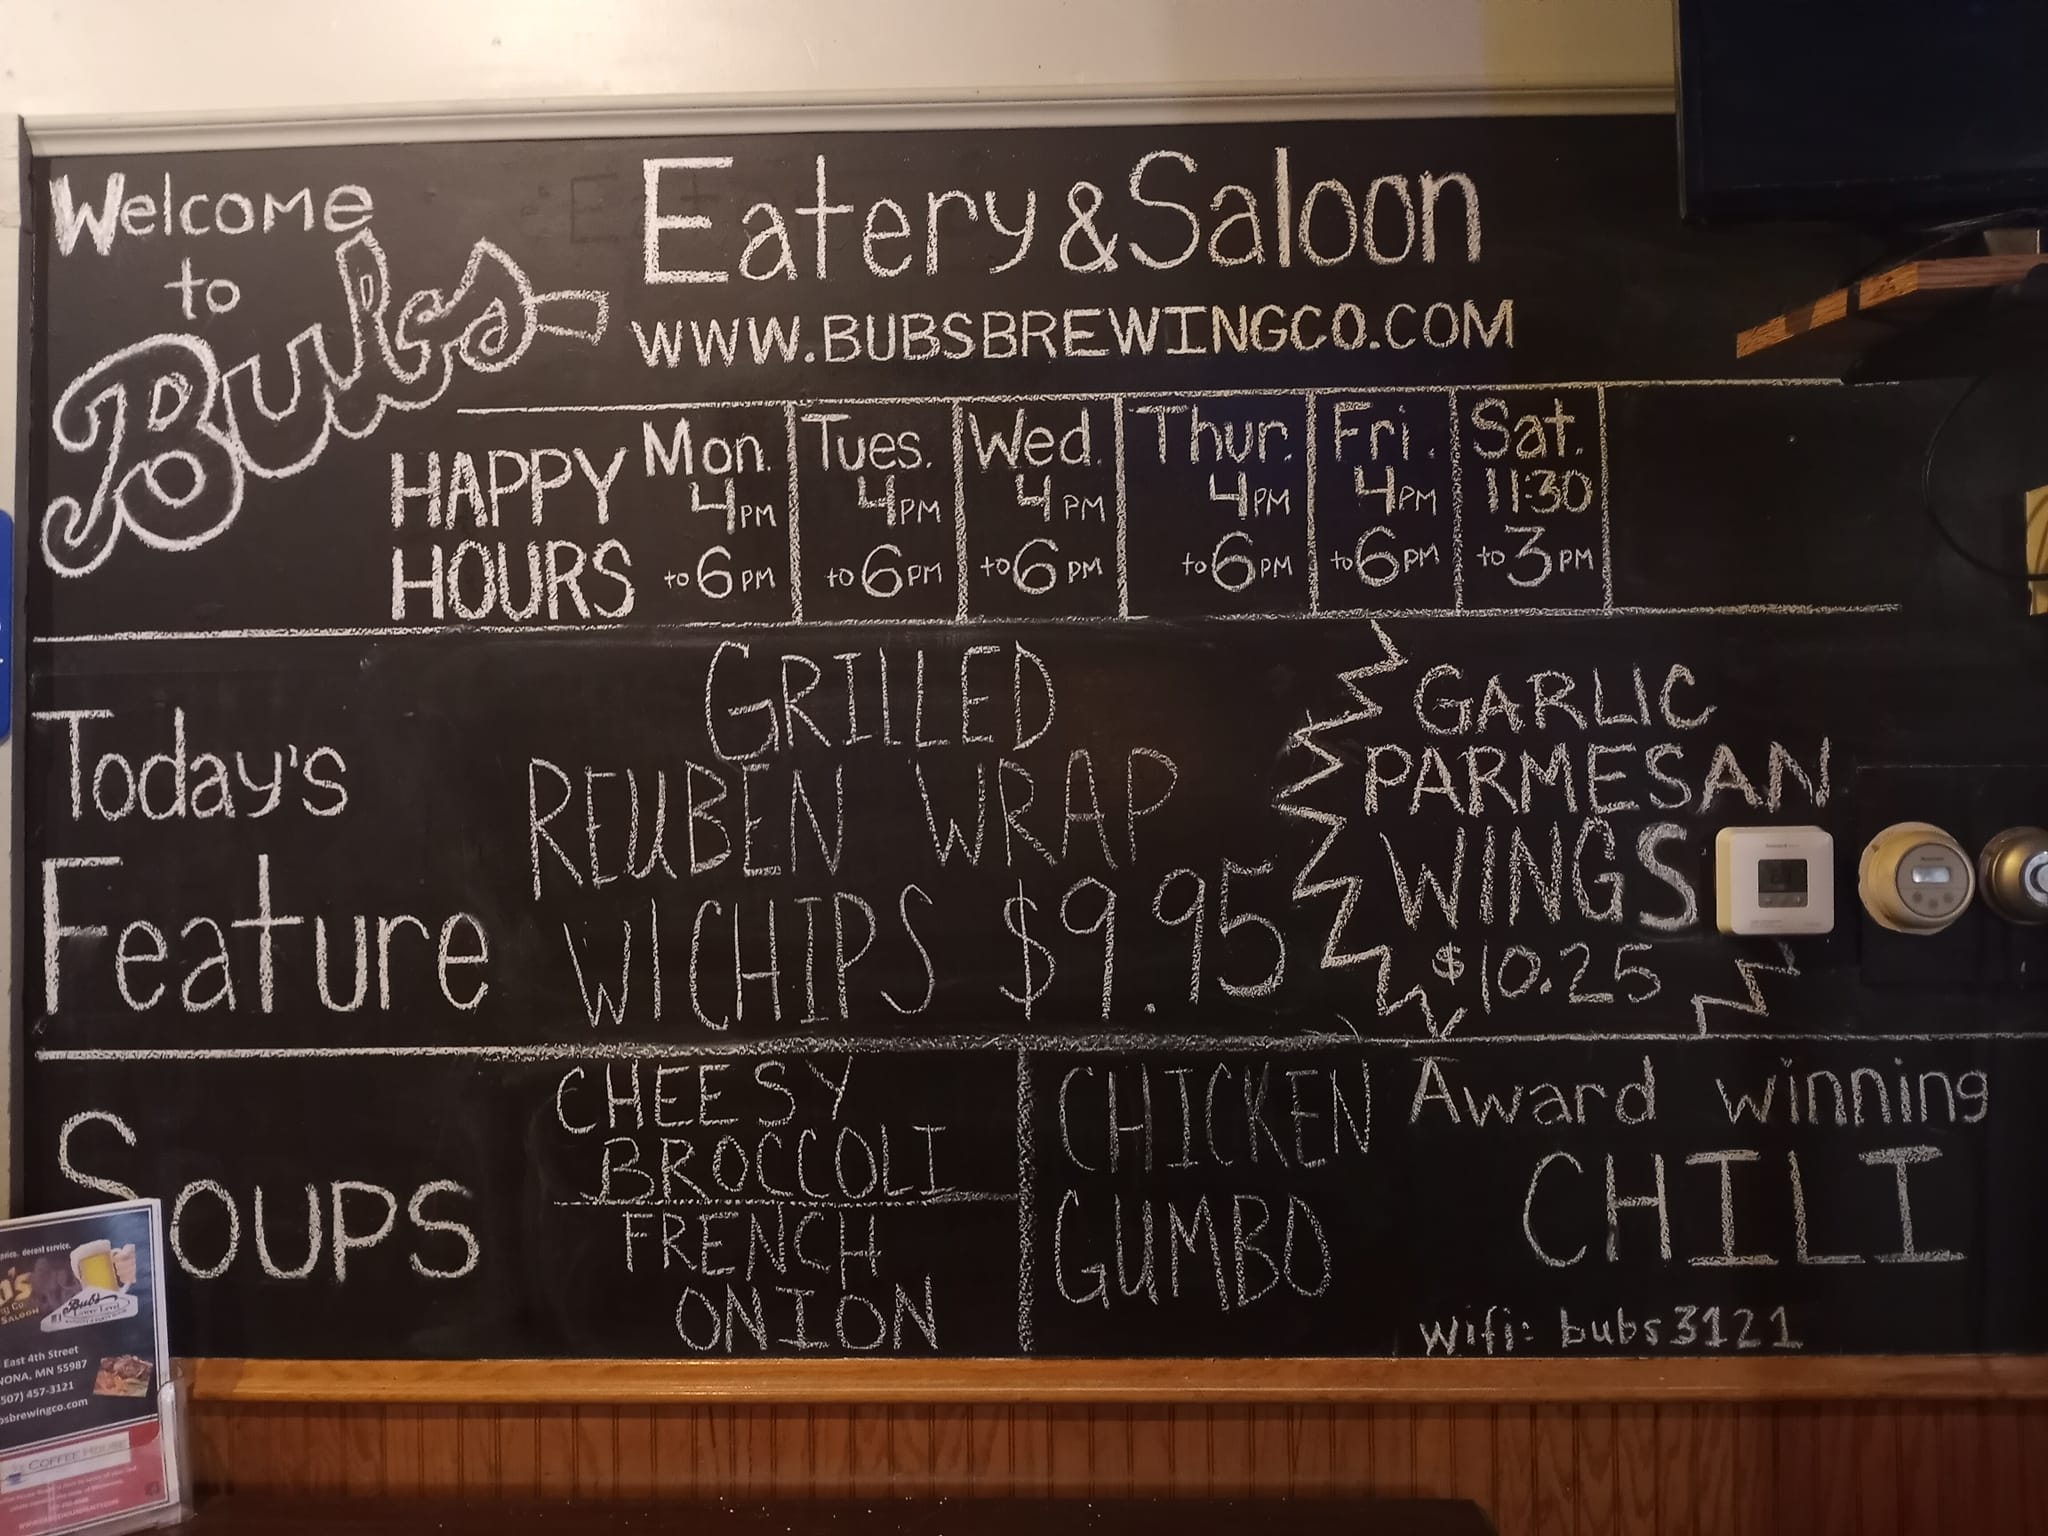 Welcome
to
Bubs
Eatery & Saloon
WWW.BUBSBREWINGCO.COM
HAPPY
HOURS
Mon.
4PM
to 6PM
Tues.
4PM
to 6PM
Wed.
4PM
to 6PM
Thur.
4PM
to 6PM
Fri.
4PM
to 6PM
Sat.
11:30
to 3PM
Today's
Feature
GRILLED
REUBEN WRAP
W/CHIPS $9.95
GARLIC
PARMESAN
WINGS
$10.25
SOUPS
CHEESY
BROCCOLI
FRENCH
ONION
CHICKEN
GUMBO
Award winning
CHILI
wifi: bubs3121
decent service.
SALOON
Bub's
Lower Level
East 4th Street
NONA, MN 55987
507) 457-3121
bsbrewingco.com
COFFEE HOUSE